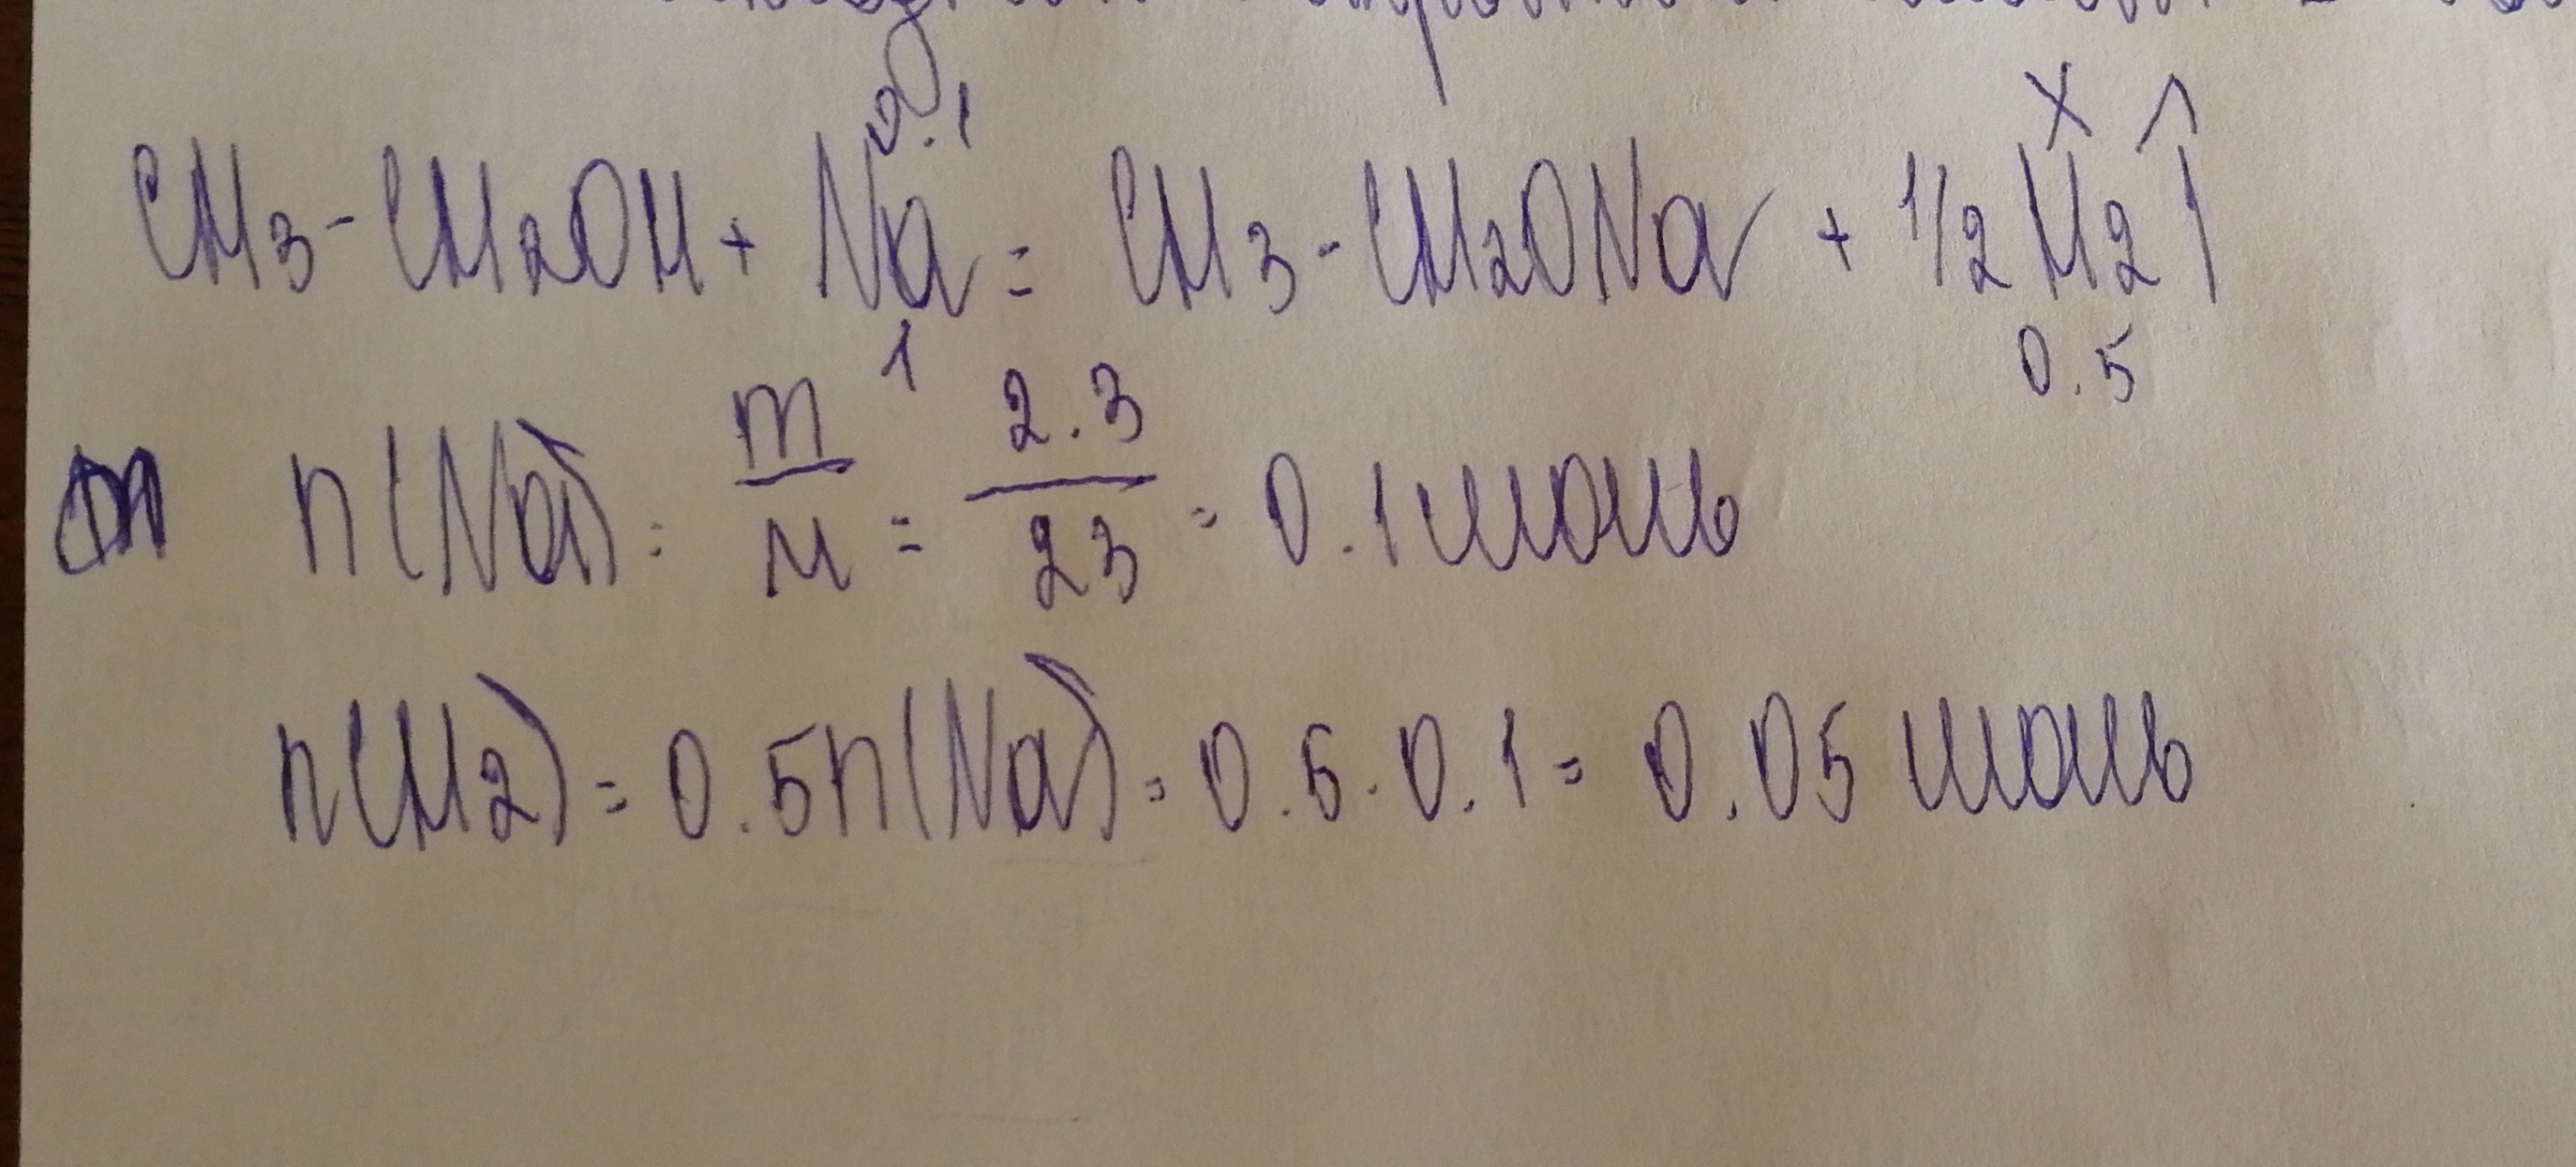 0.1 X
CH3-CH2OH + Na = CH3-CH2ONa + 1/2 H2↑
1 0.5
n(Na) = m/M = 2.3/23 = 0.1 моль
n(H2) = 0.5n(Na) = 0.5·0.1 = 0.05 моль